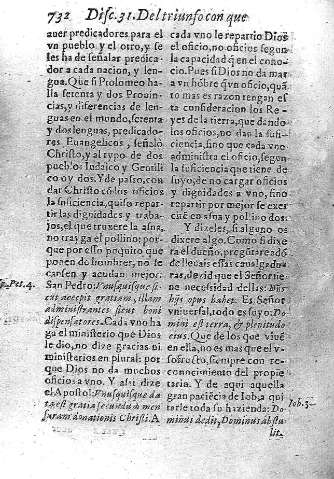 732 Disc. 31. Del triunfo con que
auer predicadores para el
vn pueblo y el otro, y se
les ha de señalar predica-
dor a cada nacion, y len-
gua. Que si Ptolomeo ha-
lla setenta y dos Prouin-
cias, y diferencias de len-
guas en el mundo, setenta
y dos lenguas, predicado-
res Euangelicos, señalò
Christo, y al typo de dos
pueblos Iudaico y Gentili
co o y dos. Y de passo, con
dar Christo cõ los oficios
la suficiencia, quiso repar-
tir las dignidades y traba-
jos, el que truxere la asna,
no trayga el pollino; por-
que por esso poquito que
ponen de hombres, no se
cansen y acudan mejor.
San Pedro: Vnusquisque si-
cut accepit gratiam, illam
administrantes sicut boni
dispensatores. Cada vno ha
ga el ministerio que Dios
le dio, no dize gracias ni
ministerios en plural: por
que Dios no da muchos
oficios a vno. Y assi dize
el Apostol: Vnusquisque da
ta est gratia secundũ men
suram donationis Christi. A
1. Pet. 4.
cada vno le repartio Dios
el oficio, no oficios segun
la capacidad q̃ en el cono-
cio. Pues si Dios no da mas
a vn hõbre q̃ vn oficio, quã
to mas es razon tengan es
ta consideracion los Re-
yes de la tierra, que dando
los oficios, no dan la sufi-
ciencia, sino que cada vno
administra el oficio, segun
la suficiencia que tiene de
suyo, de no cargar oficios
y dignidades a vno, sino
repartir por mejor se exer
cuẽ con asna y pollino dos.
Y dizeles, si alguno os
dixere algo. Como si dixe
ra el dueño, preguntareos
de lleuais essas caualgadu
ras, dezid que el Señor tie
ne necessidad dellas. Do-
mus his opus habet. Es Señor
vniuersal, todo es suyo: Do
mini est terra, & plenitudo
eius. Que de los que viuẽ
en ella, no es mas que el v
so fructo, siempre con re-
conocimiento del propie
tario. Y de aqui aquella
gran paciẽcia de Iob, a qui
tarle toda su hazienda: Do
minus dedit, Dominus abstu
lit.
Iob. 3.